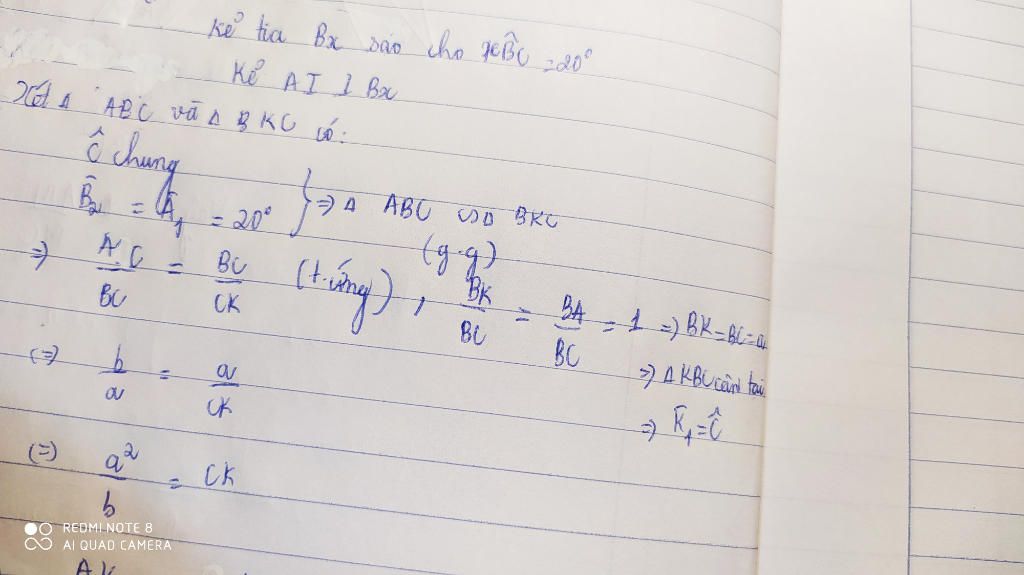 Kẻ tia Bx sao cho xB̂C = 20°
Kẻ AI ⊥ Bx
Xét Δ ABC và Δ BKC có:
Ĉ chung
B̂₂ = Â₁ = 20° } ⇒ Δ ABC ∽ Δ BKC
(g.g)
⇒ AC/BC = BC/CK (t.ứng), BK/BC = BA/BC = 1 ⇒ BK = BC = a
⇒ Δ KBC cân tại
(=) b/a = a/CK
⇒ K̂₁ = Ĉ
(=) a²/b = CK
REDMI NOTE 8
AI QUAD CAMERA
AK